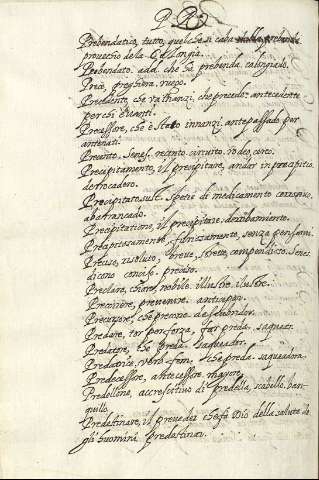 P R
Prebendatico, tutto quel che si cava dalla prebenda.
provecho della Calongia.
Prebendato. add. che ha prebenda. calongiado.
Prece, preghiera, ruego.
Precedente, che va innanzi, che precede. antecedente
Precessore, che è stato innanzi. antepassado por
antenati.
Precinto. Senes. recinto. circuito. rodeo, cerco.
Precipitamento, il precipitare, andar in precipitio.
derrocadero.
Precipitato. sust. spetie di medicamento corrosivo.
Precipitatione, il precipitare. derribamiento.
senza pensarvi.
Preciso, risoluto, breve, stretto, compendioso. Senes.
dicono conciso. preciso.
Preclaro, chiaro, nobile. illustre. ilustre.
prevenire. anticipar.
Precursore, che precorre. descubridor.
Predare, tor per forza, far preda. saquear.
Predatore, che preda. saqueador.
Predatrice, verb. fem. che preda. saqueadora.
Predecessore, antecessore. mayore.
Predellone, accrescitivo di predella, scabello. ban-
quillo.
Predestinare, il prevedere che fa Dio della salute de
gli huomini. predestinar.